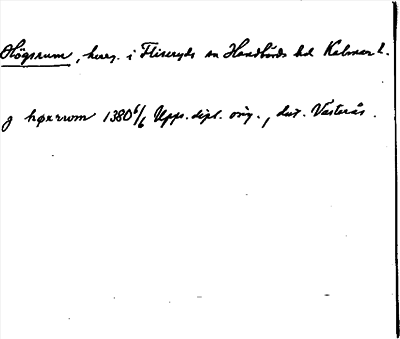 Högsrum, herg. i Fliseryds sn Handbörds hd Kalmar l.
j høxrwm 1380 6/6 Upps. dipl. orig., dat. Västerås.